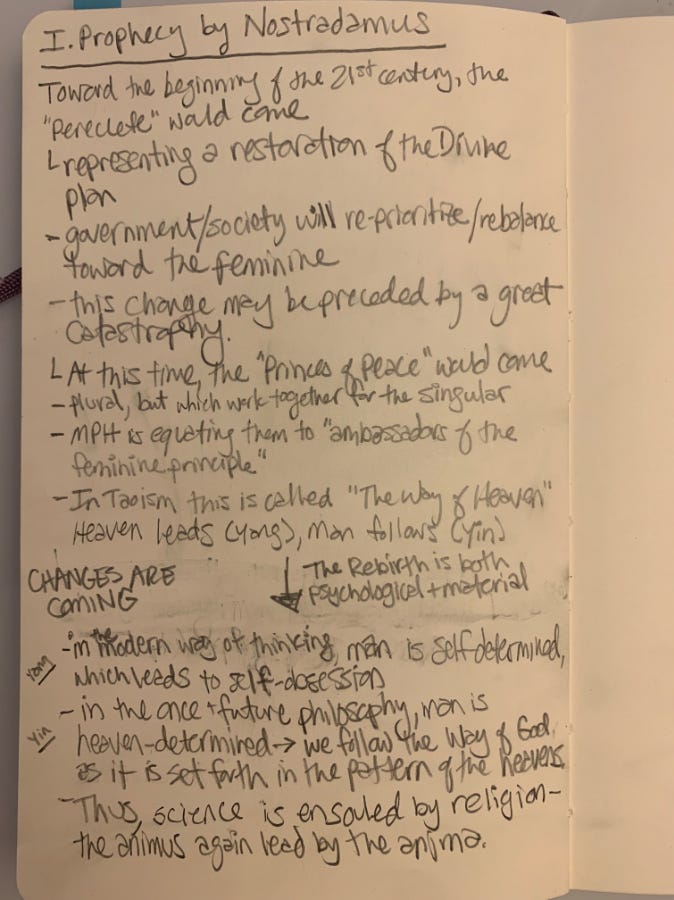 I. Prophecy by Nostradamus
Toward the beginning of the 21st century, the
"Pereclete" would come
└ representing a restoration of the Divine
plan
- government/society will re-prioritize/rebalance
toward the feminine
- this change may be preceded by a great
catastrophy.
└ At this time, the "Princes of Peace" would come
- plural, but which work together for the singular
- MPH is equating them to "ambassadors of the
feminine principle"
- In Taoism this is called "The Way of Heaven"
Heaven leads (yang), man follows (yin)
CHANGES ARE
COMING
↓ The Rebirth is both
psychological + material
Yang - in the modern way of thinking, man is self-determined,
which leads to self-obsession
Yin - in the once + future philosophy, man is
heaven-determined → we follow the Way of God
as it is set forth in the pattern of the heavens.
- Thus, science is ensouled by religion -
the animus again lead by the anima.